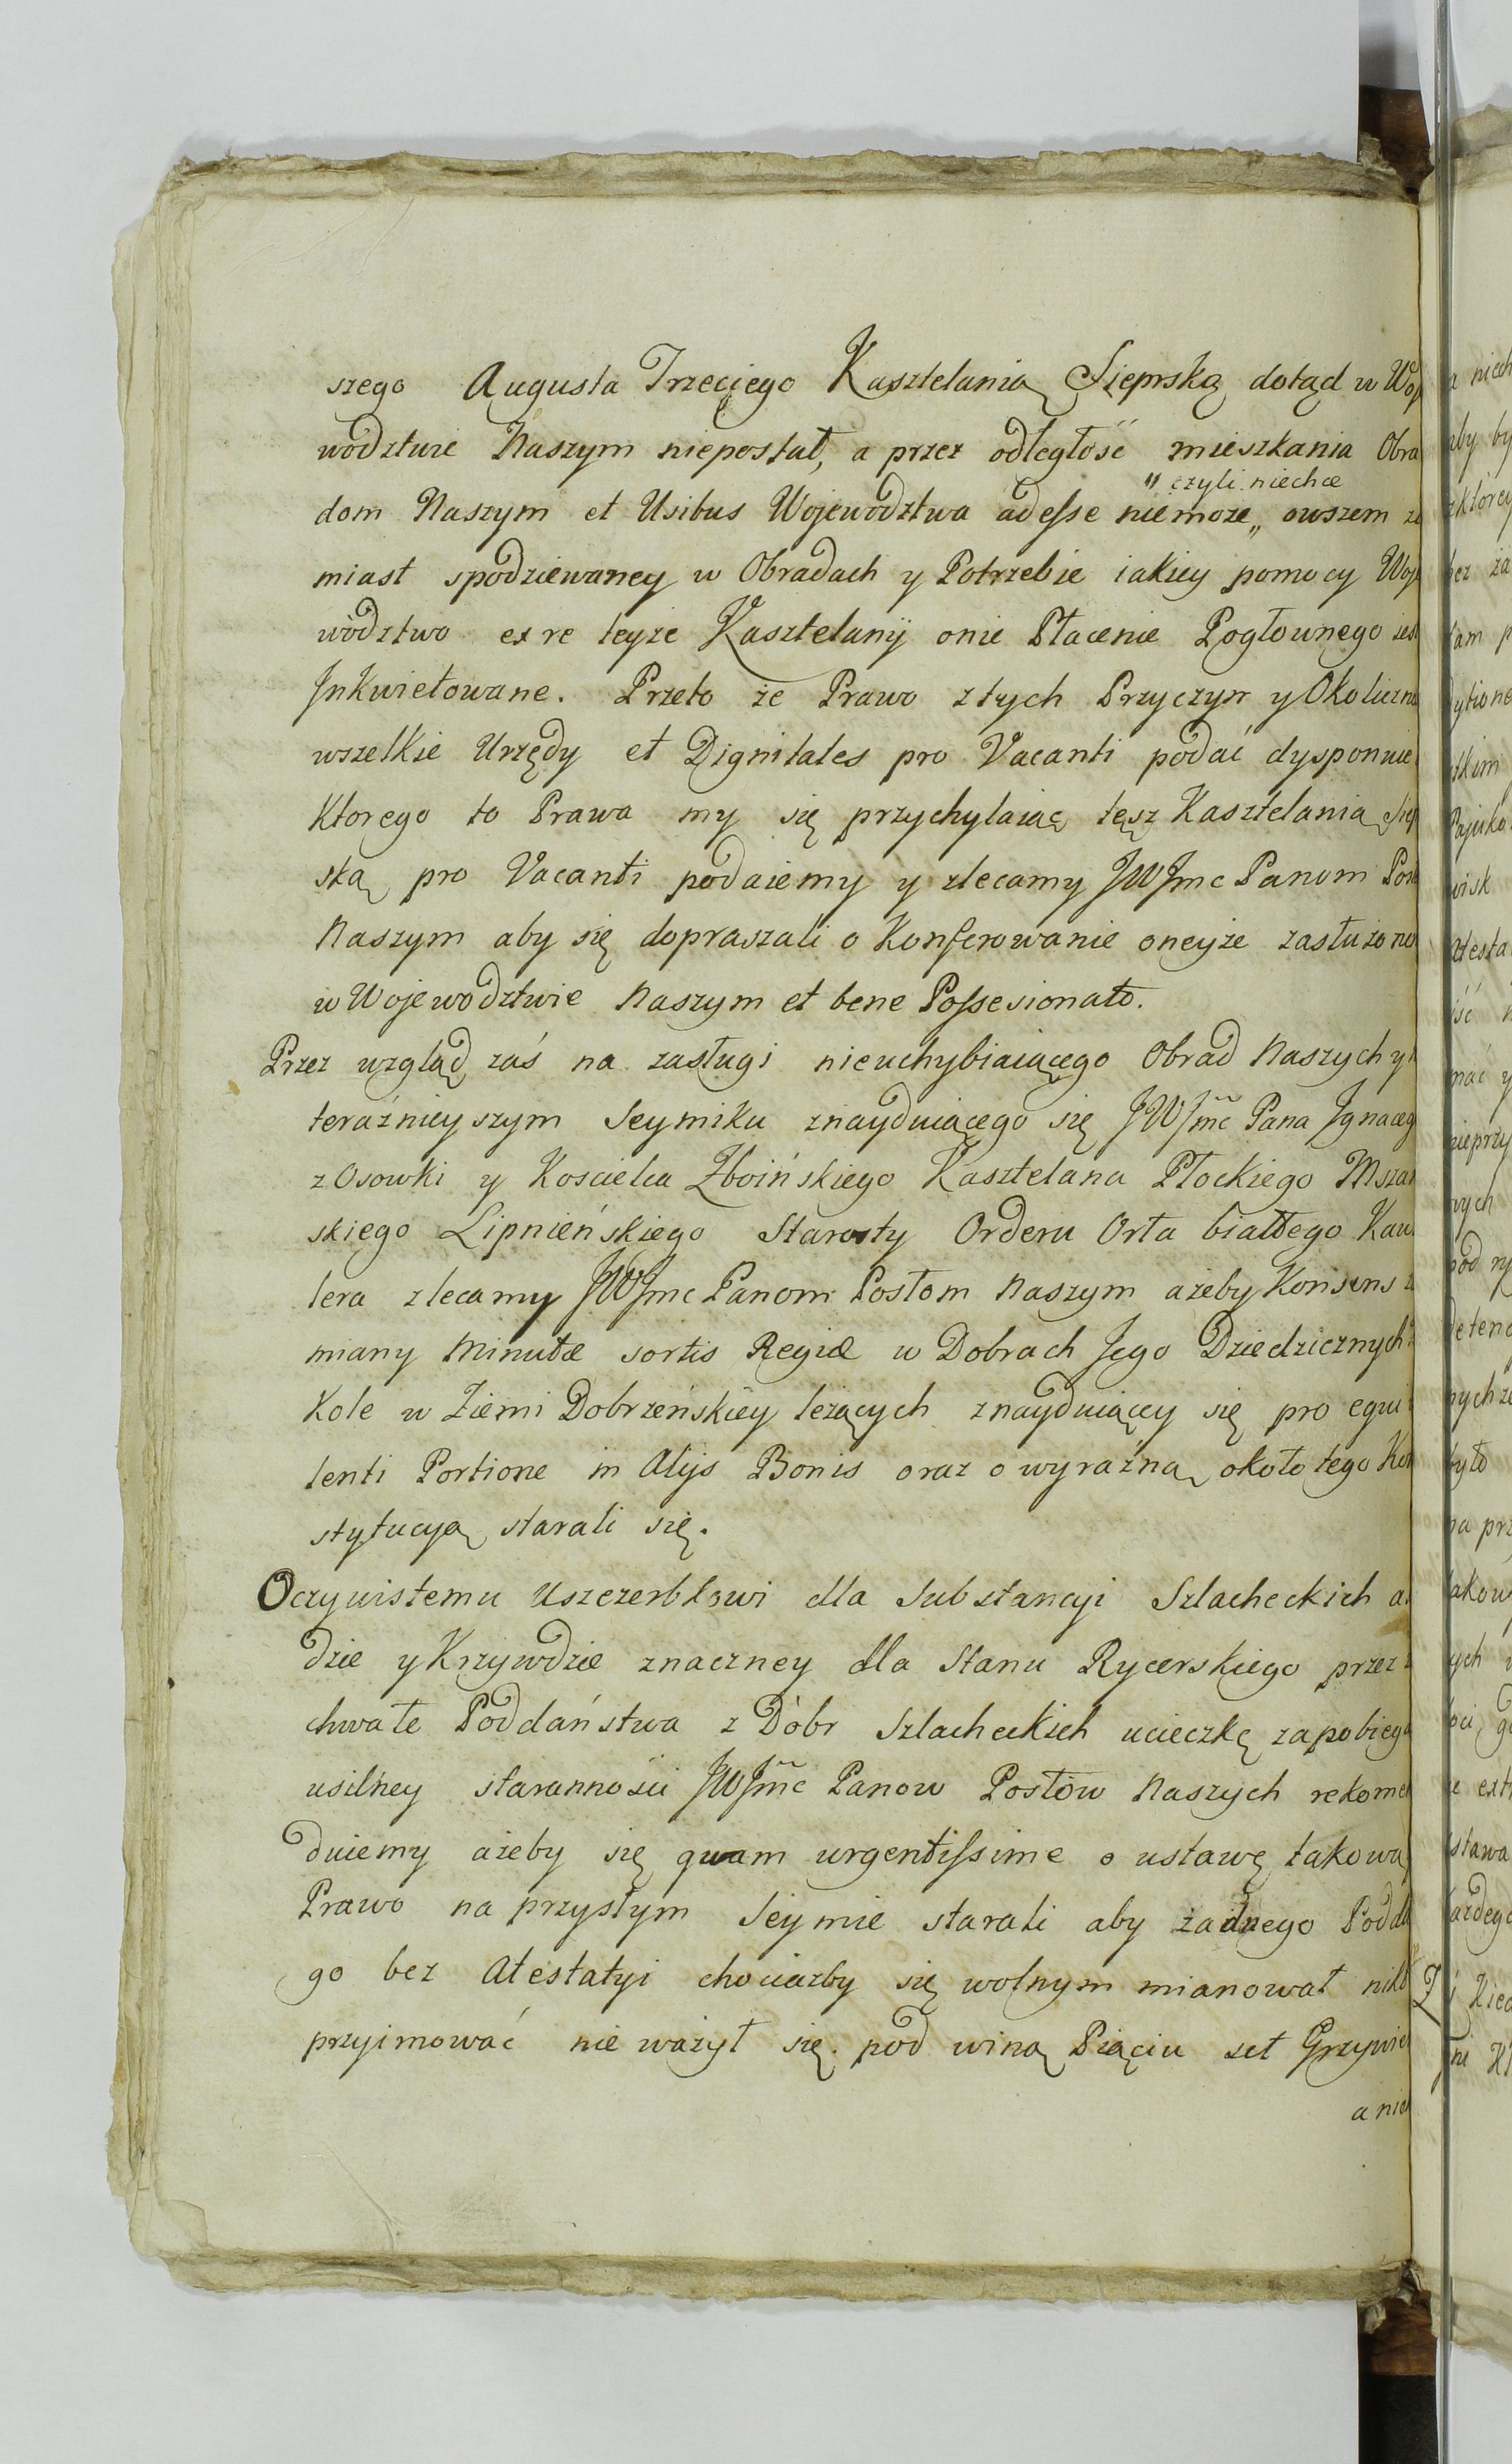 szego Augusta Trzeciego Kasztelanią Sieprską dotąd w Woj
wodztwie Naszym niepostał, a przez odległość mieszkania Obra
" czyli niechce
dom Naszym et Usibus Wojewodztwa adesse niemoze,, owszem za
miast spodziewaney w Obradach y Potrzebie iakiey pomocy Woje
wodztwo ex re teyze Kasztelanij onie Płacenie Pogłownego iest
Inkwietowane. Przeto ze Prawo z tych Przyczyn y Okoliczno
wszelkie Urzędy et Dignitates pro Vacanti podać dysponuie
Ktorego to Prawa my się przychylaiąc tęsz Kasztelanią Siep
ską pro Vacanti podaiemy y zlecamy JWJmc Panom Posł
Naszym aby się dopraszali o Konferowanie oneyze zasłużone
w Wojewodztwie Naszym et bene Possesionato.
Przez wzgląd zaś na zasługi nieuchybiaiącego Obrad Naszych y
teraźnieyszym Seymiku znayduiącego się JWJmc Pana Jgnaceg
z Osowki y Koscielca Zboińskiego Kasztelana Płockiego Mszan
skiego Lipnieńskiego Starosty Orderu Orła białłego Kawa
lera zlecamy JWJmc Panom Posłom Naszym ażeby Konsens za
miany Minutæ sortis Regiæ w Dobrach Jego Dziedzicznych
Kole w Ziemi Dobrzeńskiey leżących znayduiącey się pro equi
lenti Portione in Alijs Bonis oraz o wyraźną około tego Kon
stytucyą starali się.
Oczywistemu Uszczerbkowi dla Substancyi Szlacheckich a
dzie y Krzywdzie znaczney dla Stanu Rycerskiego przez z
chwałe Poddaństwa z Dóbr Szlacheckich ucieczkę zapobiega
usilney staranności JWJmc Panow Posłów Naszych rekomen
duiemy ażeby się quam urgentissime o ustawę takową
Prawo na przysłym Seymie starali aby żadnego Podda
go bez Atestatyi chociazby się wolnym mianował nikt
przyimować nie ważył się pod winą Piąciu set Grzywie
a nie